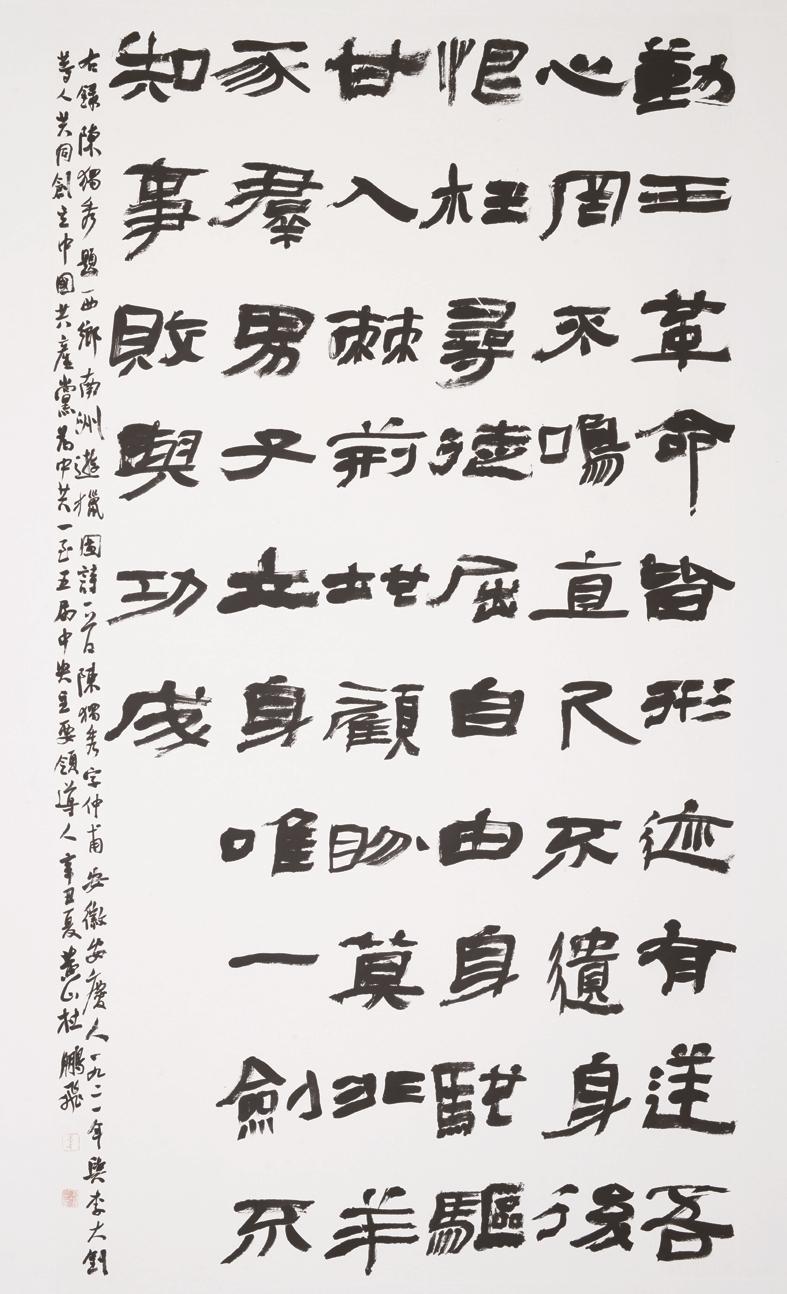 勤王革命皆形迹有逆吾
心罔不鳴直尺不遺身後
恨枉尋徒屈自由身馳驅
甘入棘荆地顧盼莫非羊
豕羣男子立身唯一劍不
知事敗與功成
右録陳獨秀題西鄉南洲遊獵圖詩一首陳獨秀字仲甫安徽安慶人一九二一年與李大釗
等人共同創立中國共產黨為中共一至五屆中央主要領導人辛丑夏黄山杜鵬飛